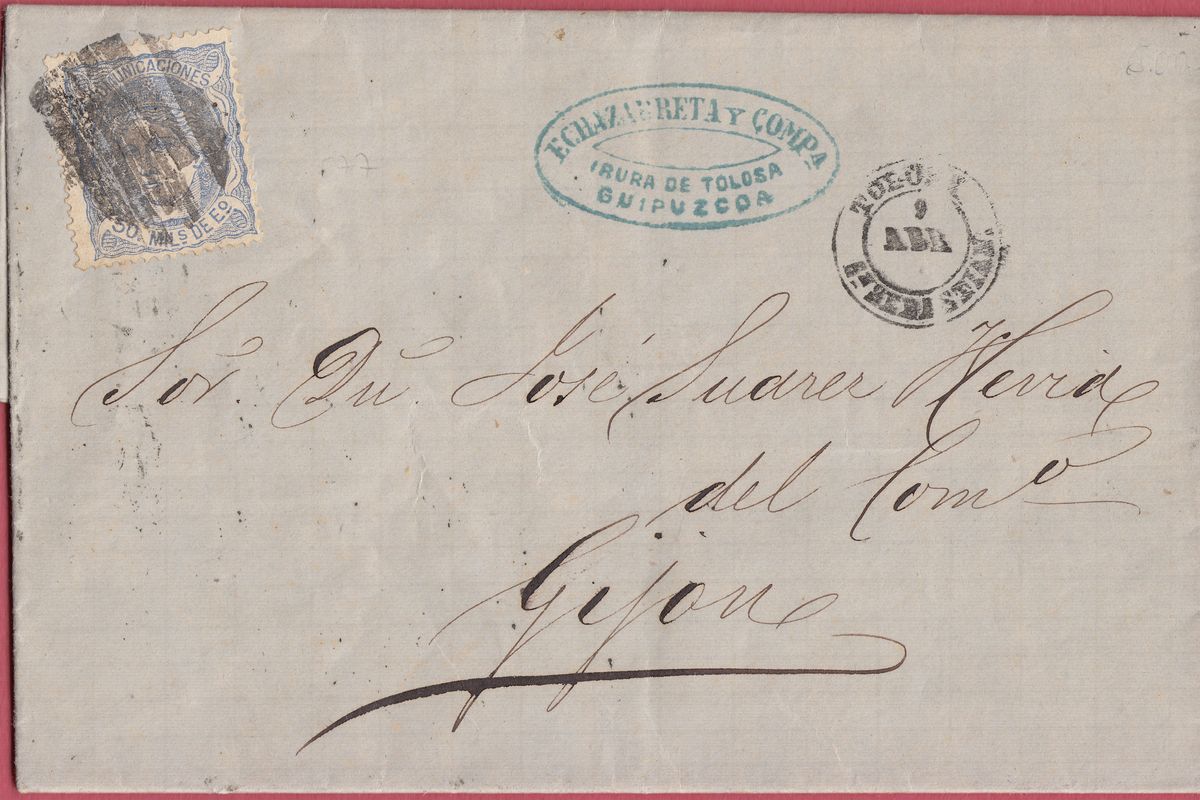 COMUNICACIONES
50. MNS DE Eo.
ECHAZARRETA Y COMPA
IRURA DE TOLOSA
GUIPUZCOA
TOLOSA
9
ABR
577
Sor. Dn. José Suarez Hevia
del Como
Gijon